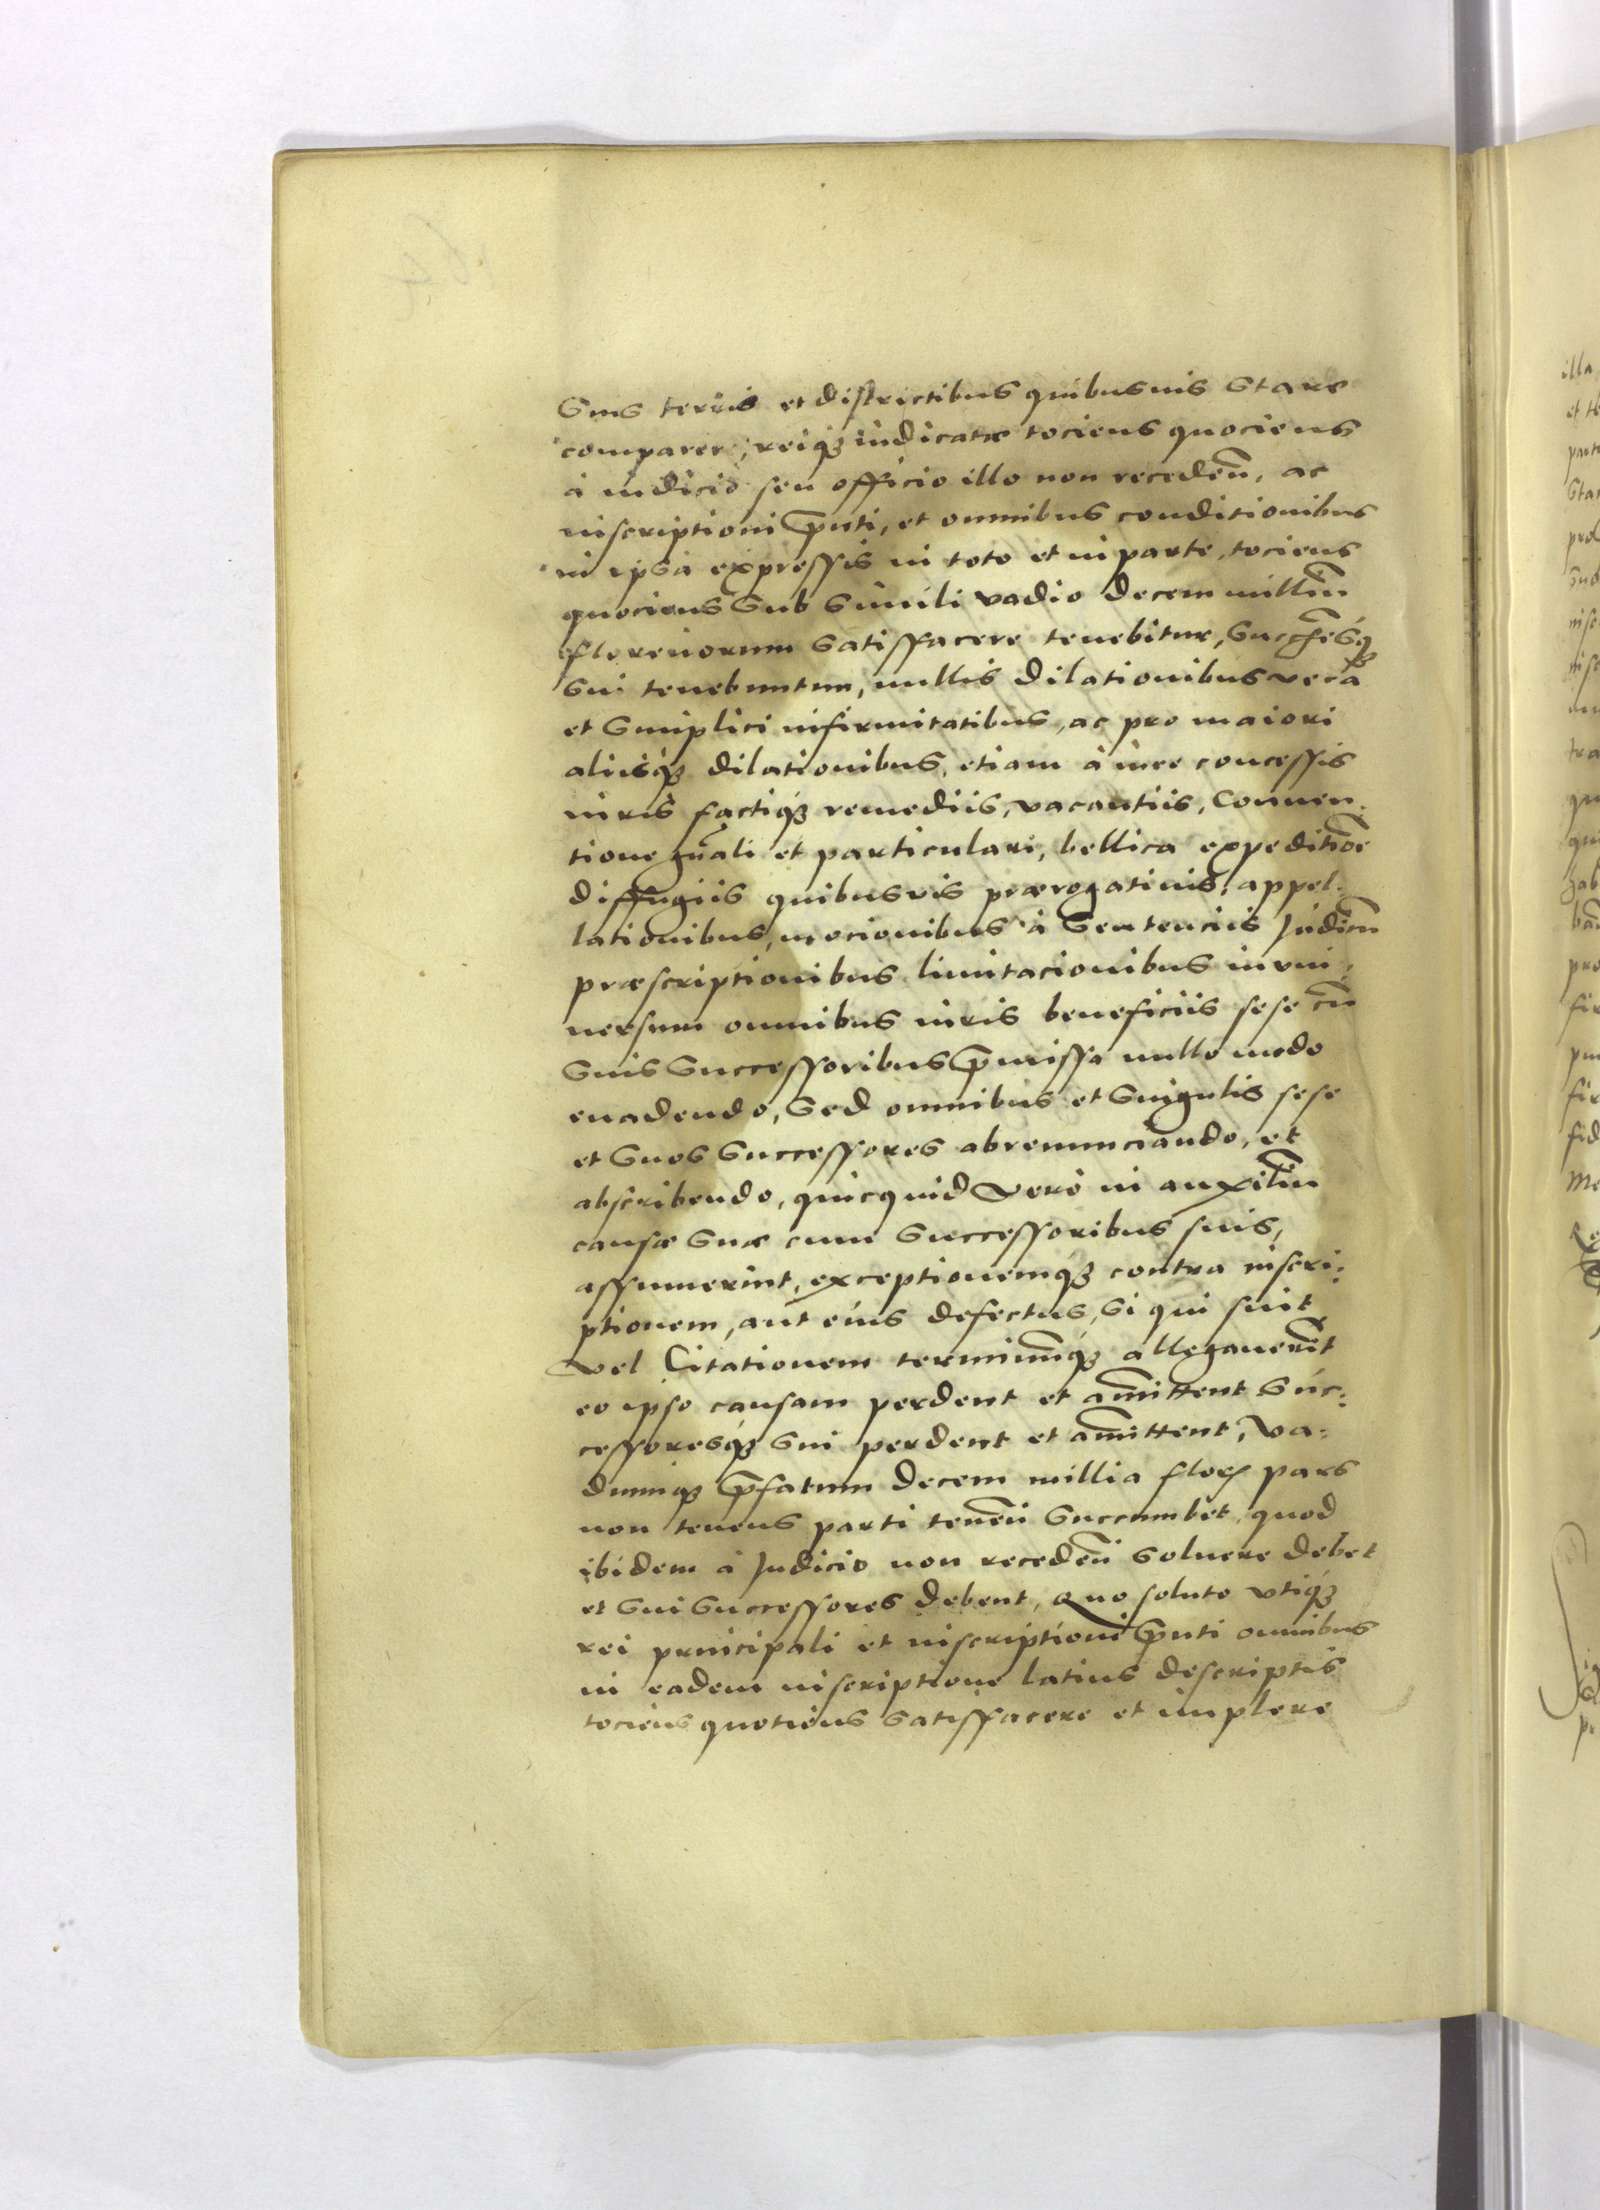 suis terris et districtibus quibusuis stare
comparere, reiq3 iudicatæ tociens quociens
à iudicio seu officio illo non receden̄, ac
inscriptioni p̄nti, et omnibus conditionibus
in ipsa expressis in toto et in parte, tociens
quociens sub simili vadio decem milliū
florenorum satisffacere tenebitur, Succ̄resq3
sui tenebuntur, nullis dilationibus vera
et simplici infirmitatibus, ac pro maiori
aliisq3 dilationibus, etiam à iure concessis
iuris factiq3 remediis, vacantiis, Conuen-
tione gn̄ali et particulari, bellica expeditiōe
diffugiis quibusuis prærogatiuis, appel-
lationibus, mocionibus à Sentenciis Judicū
præscriptionibus limitacionibus in vni-
uersum omnibus iuris beneficiis sese cū
suis Successoribus p̄missa nullo modo
euadendo, Sed omnibus et singulis sese
et suos Successores abrenunciando, et
abscribendo, quicquid vero in auxiliū
causæ suæ cum Successoribus suis,
assumerint, exceptionemq3 contra inscri:
ptionem, aut eius defectus, si qui sint
vel Citationem terminūq3 allegauerīt
eo ipso causam perdent et am̄ittent Suc:
cessoresq3 sui perdent et am̄ittent, Va:
diumq3 p̄fatum decem millia flor. pars
non tenens parti tenen̄ succumbet, quod
ibidem à Judicio non receden̄ soluere debet
et sui Successores debent, Quo soluto vtiq3
rei principali et inscriptioni p̄nti omnibus
in eadem inscriptione latius descriptis
tociens quotiens satisffacere et implere